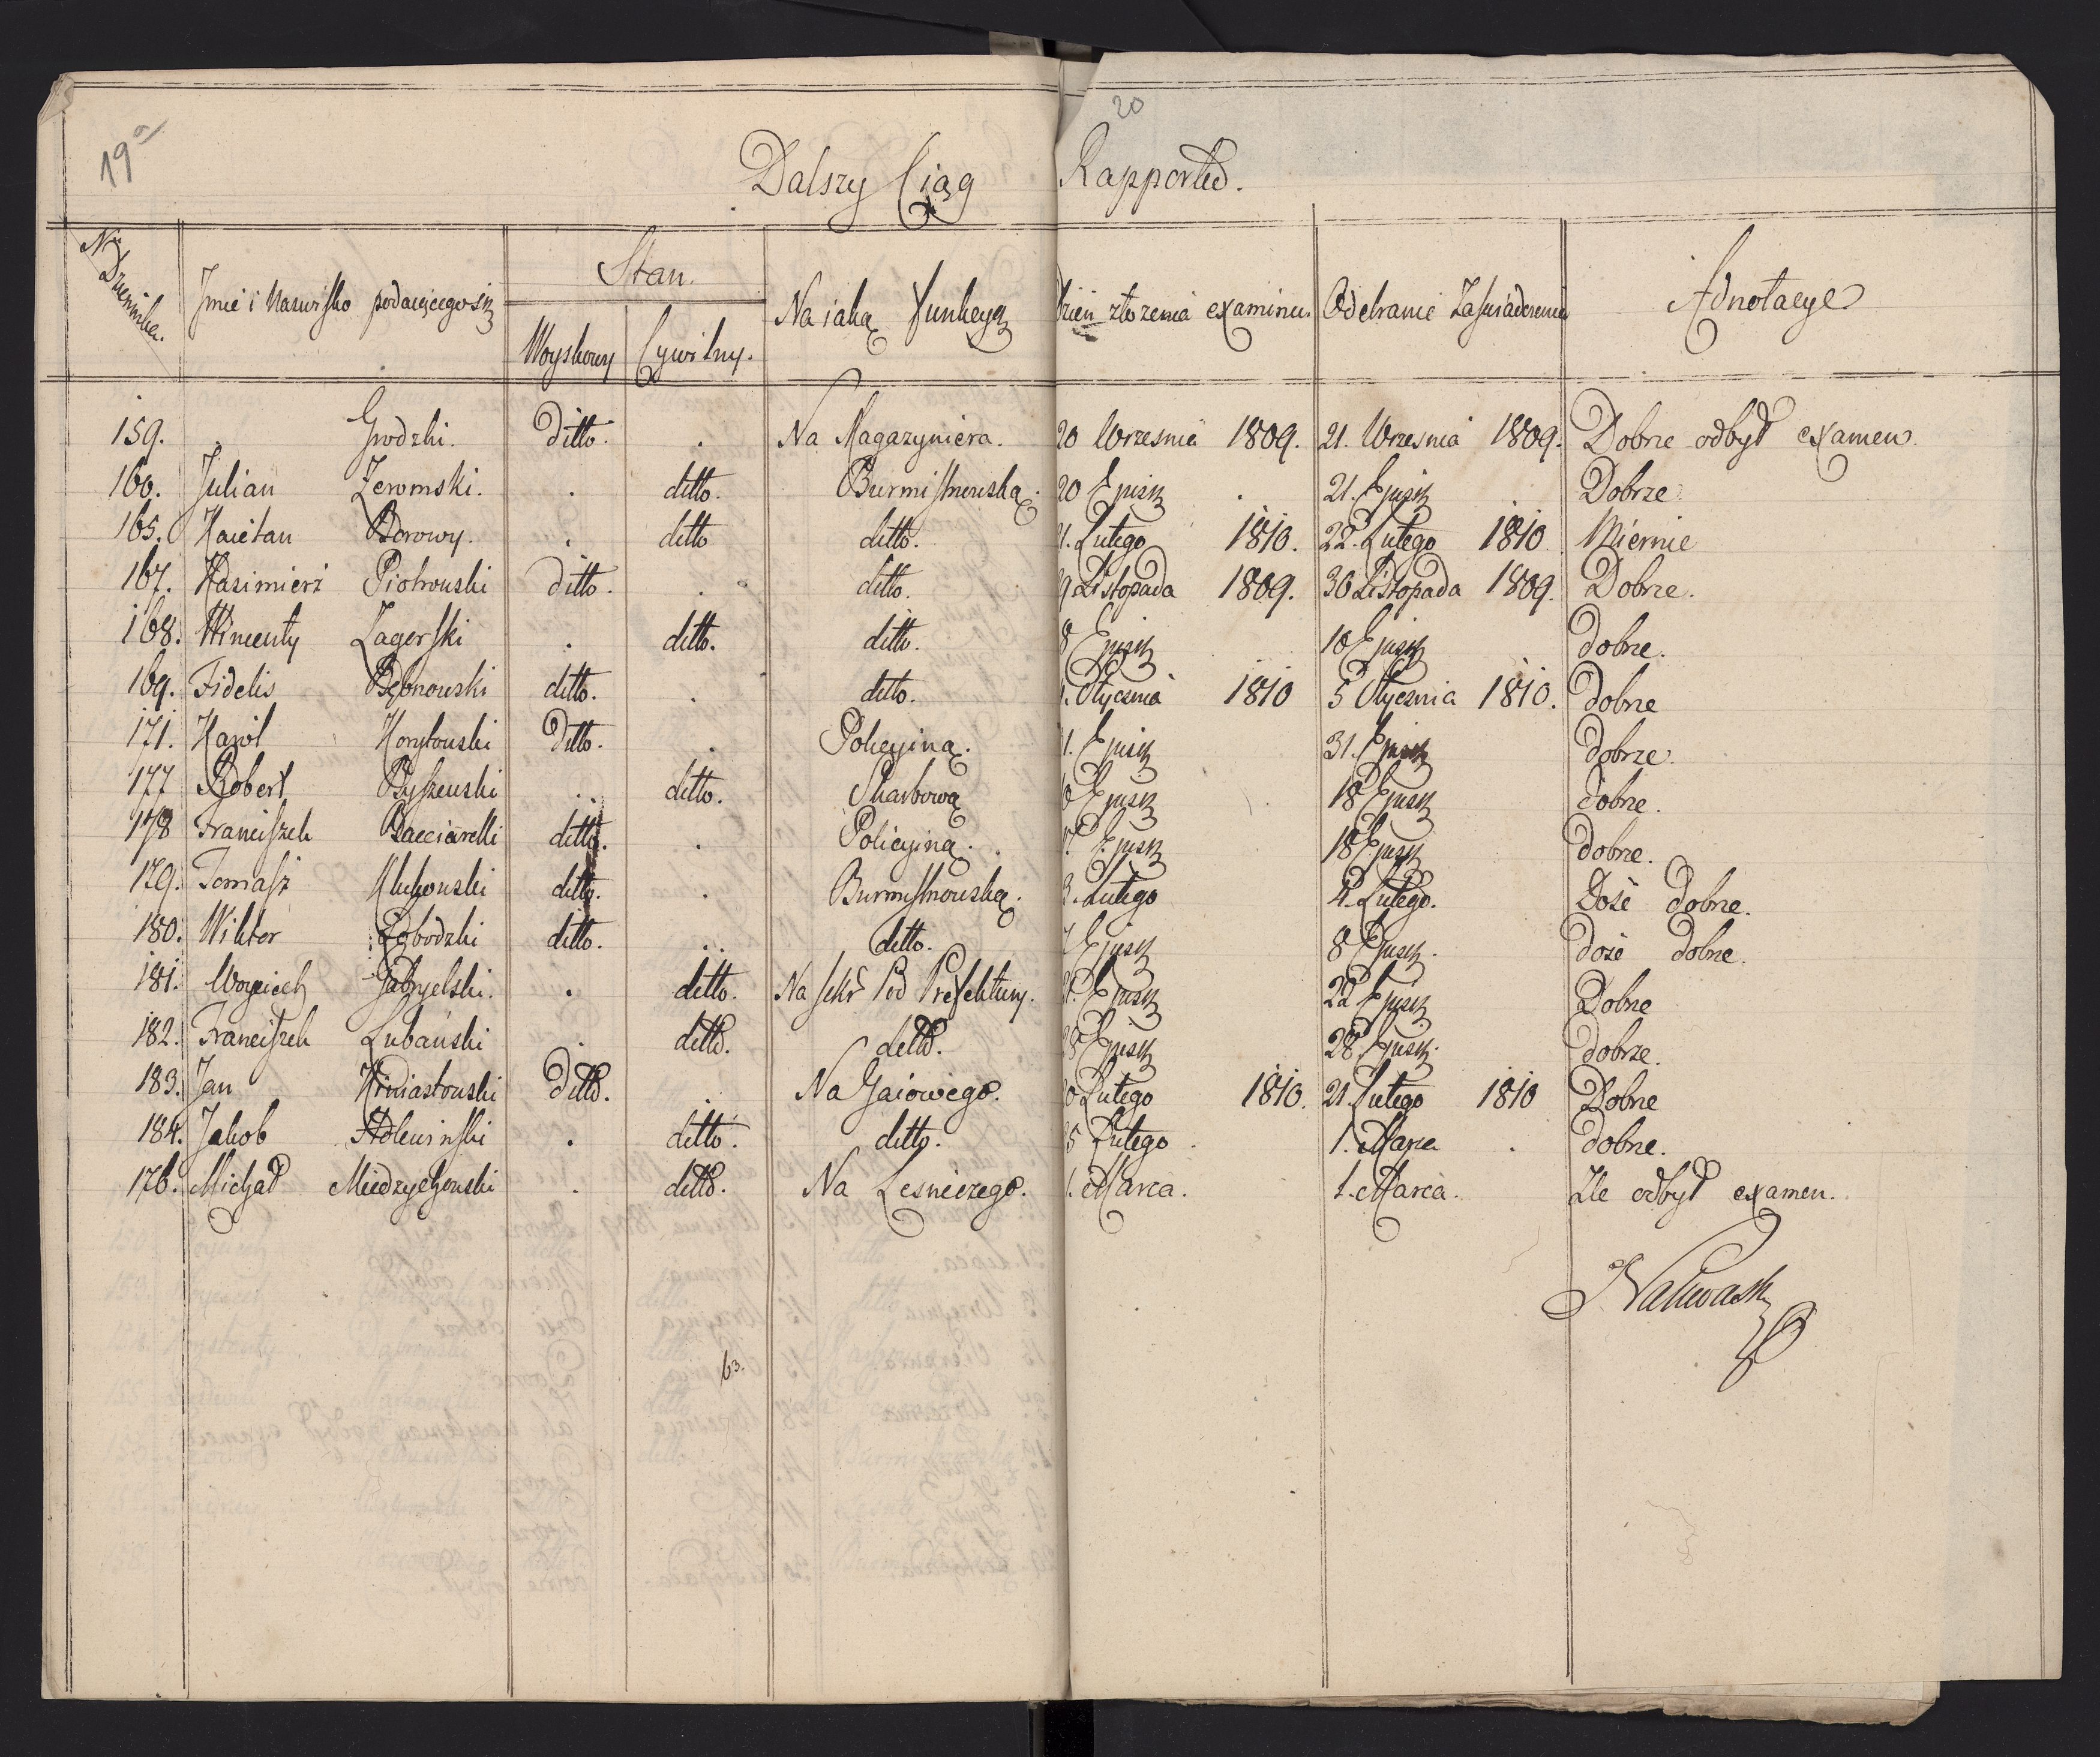 19a
20
Dalszy Ciąg Rapportu.
Nr Dziennika.
Jmie i Nazwisko podaiącego się
Stan.
Woyskowy
Cywilny.
Na iaką Funkcyą
Dzień złożenia examinu.
Odebranie Zaświadczenia
Adnotacye
159. Grodzki. Ditto. Na Magazyniera. 20 Wrzesnia 1809. 21. Wrzesnia 1809. Dobrze odbył examen.
160. Julian Zeromski. ditto. Burmistrzowską. 20 Ejusd 21. Ejusd Dobrze
165. Kaietan Borowy. ditto ditto. 1. Lutego 1810. 22. Lutego 1810. Miernie
167. Kasimierz Piotrowski ditto. ditto. 9 Listopada 1809. 30 Listopada 1809. Dobrze.
168. Wincenty Zagorski ditto. ditto. 8 Ejusd 10 Ejusd dobrze.
169. Fidelis Dębnowski ditto. ditto. Stycznia 1810 5 Stycznia 1810. dobrze
171. Karol Korytowski Ditto. Policyiną. 1. Ejusd 31. Ejusd dobrze.
177 Robert Byszewski ditto. Skarbową Ejusd 18 Ejusd dobrze.
178 Franciszek Bacciarelli ditto. Policyiną. 7. Ejusd 18 Ejusd dobrze.
179. Tomasz Klukowski ditto. Burmistrzowską. 3. Lutego 4. Lutego. Dosć dobrze.
180. Wiktor ditto. ditto. 7 Ejusd 8 Ejusd. dosć dobrze.
181. Woyciech Gabryelski. ditto. Na Sekr Pod Prefektury. Ejusd 22 Ejusd Dobrze
182. Franciszek Lubański ditto. ditto. Ejusd 28 Ejusd. dobrze.
183. Jan Kwiastowski Ditto. Na Gaiowego. 0 Lutego 1810. 21. Lutego 1810 Dobrze
184. Jakob Adlewinski ditto. ditto. 5 Lutego 1. Marca dobrze.
176. Michał Miedzychowski ditto. Na Lesniczego. 1. Marca. 1. Marca. Zle odbył examen.
Nakwaski
63.